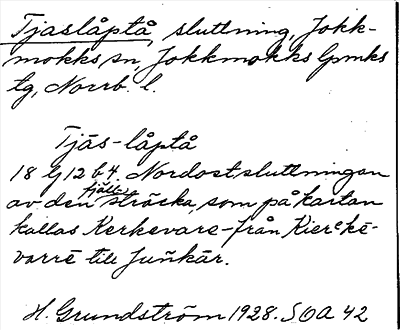 Tjaslåptå, sluttning, Jokk-
mokks sn, Jokkmokks lpmks
tg, Norrb. l.
Tjās-låptå
18 G 12 b 4. Nordostsluttningen
av den fjällsträcka, som på kartan
kallas Kerkevare - från Kierᵉkē-
varrē till Juñkār.
H. Grundström 1928. SOA 42